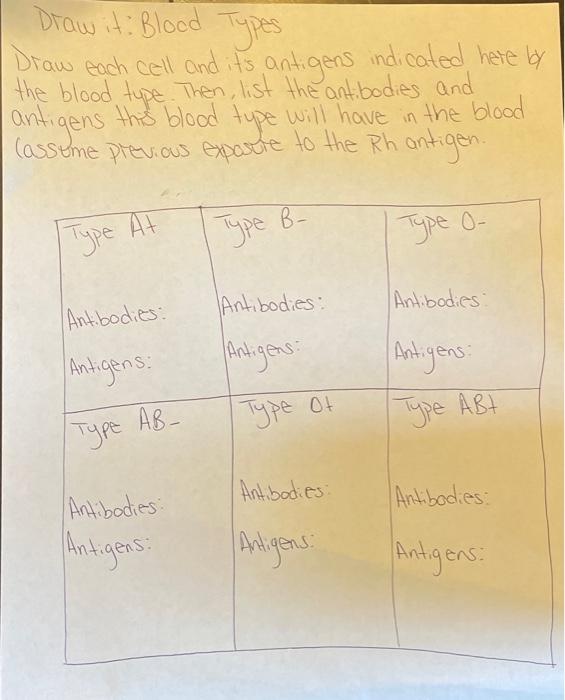 Draw it: Blood Types
Draw each cell and it's antigens indicated here by
the blood type. Then, list the antibodies and
antigens this blood type will have in the blood
(assume previous exposure to the Rh antigen.
Type A+
Antibodies:
Antigens:
Type B-
Antibodies:
Antigens:
Type O-
Antibodies:
Antigens:
Type AB-
Antibodies:
Antigens:
Type O+
Antibodies:
Antigens:
Type AB+
Antibodies:
Antigens: